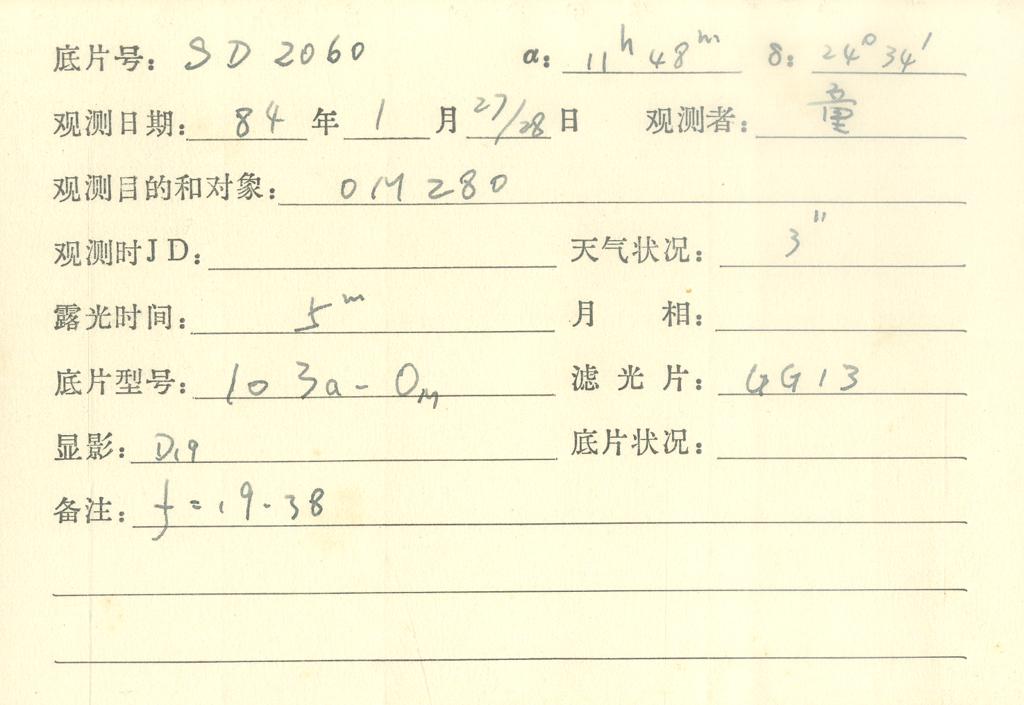 底片号: SD 2060 α: 11h 48m δ: 24° 34′
观测日期: 84 年 1 月 27/28 日 观测者: 童
观测目的和对象: OM 280
观测时JD: 天气状况: 3″
露光时间: 5m 月 相:
底片型号: 103a-OM 滤光片: GG13
显影: D19 底片状况:
备注: f=19.38